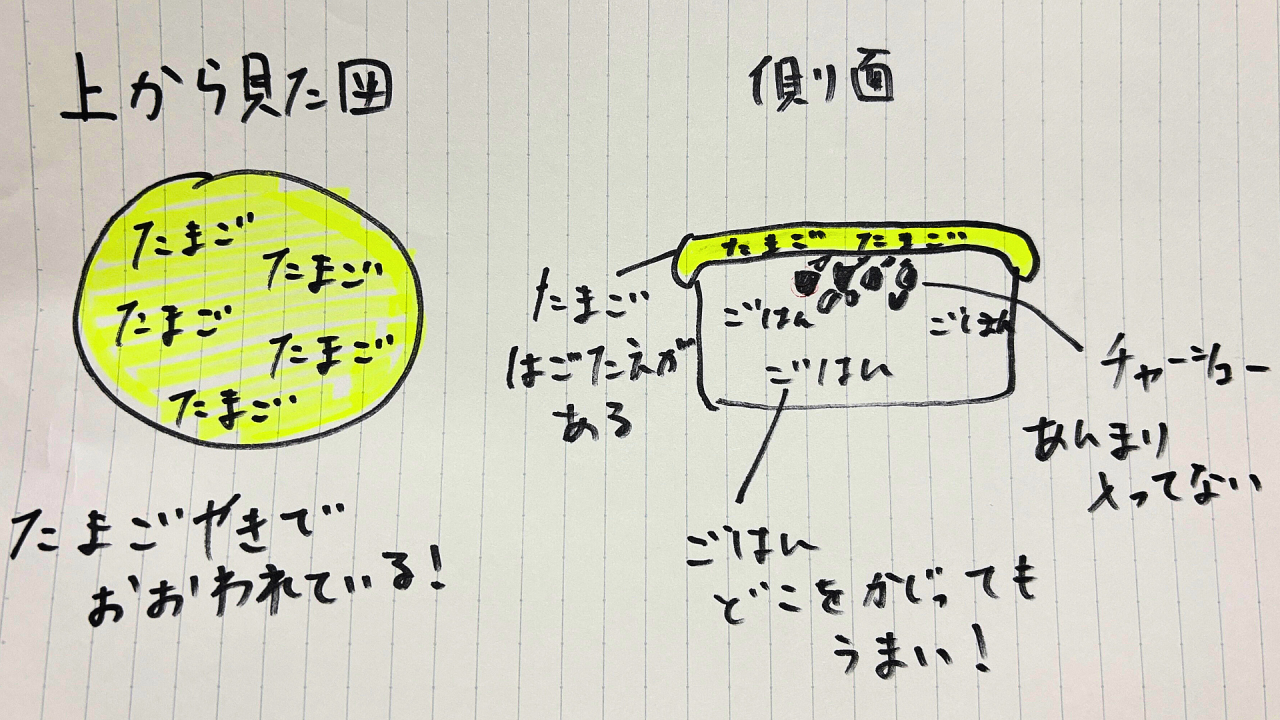 上から見た図
たまご
たまご
たまご
たまご
たまご
たまごやきで
おおわれている!
側り面
たまご たまご
ごはん
ごはん
ごはん
たまご
はごたえが
ある
チャーシュー
あんまり
入ってない
ごはん
どこをかじっても
うまい!